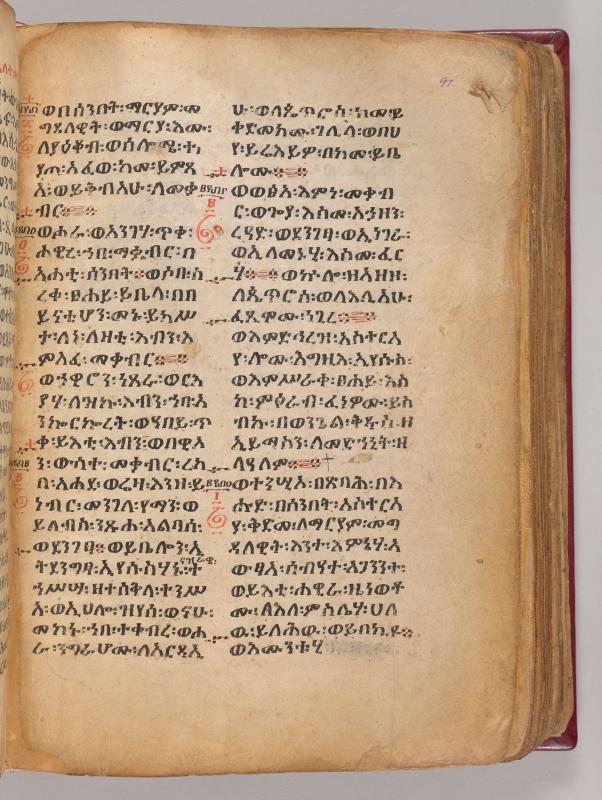 ወበሰንበት፡ማርያም፡መ
ግደላዊት፡ወማርያ፡እሙ፡
ለያዕቆብ፡ወሰሎሜ፡ተሣ
የጣ፡አፈወ፡ከመ፡ይምጻ
እ፡ወይቅብአሁ፡ለመቃ
ብር።
ወሖራ፡ወእንገሃ፡ጥቀ፡
ሖዊረ፡ኀበ፡ማቃብር፡በ
አሐቲ፡ሰንበት።ወሶበ፡ሠ
ረቀ፡ፀሐይ፡ይቤላ፡በበ
ይናቲሆን፡መኑ፡ይከሥ
ት፡ለነ፡ለዛቲ፡እብን፡እ
ምአፈ፡መቃብር።
ወኀዊሮን፡ነጸራ፡ወርእ
ያሃ፡ለዝኩ፡እብን፡ኀበ፡አ
ንኰርኰረት፡ወዓበይ፡ጥ
ቀ፡ይእቲ፡እብን፡ወበዊአ
ን፡ውስተ፡መቃብር፡ረከ
ባ፡ወሬዛ፡እንዘ፡ይ
ነብር፡መንገለ፡የማን፡ወ
ይለብስ፡ንጹሐ፡አልባሰ፡
ወደንገፃ።ወይቤሎን፡ኢ
ትደንግፃ፡ኢየሱስሃኑ፡ናዝራዊ፡ተ
ኀሥሣ፡ዘተሰቅለ፡ተንሥ
አ፡ወኢሀሎ፡ዝየሰ፡ወናሁ፡
መካኑ፡ኀበ፡ተቀብረ፡ወሑ
ራ፡ንግራሆሙ፡ለአርዳኢ
97
ሁ፡ወለጴጥሮስ፡ከመ፡ይ
ቀድመክሙ፡ገሊላ፡ወበህ
የ፡ይሬእይዎ፡በከመ፡ይቤ
ሎሙ።
ወወፅአ፡እምነ፡መቃብ
ር፡ወጐያ፡እስመ፡አኀዘን፡
ረዓድ፡ወደንገፃ፡ወኢነገራ፡
ወኢለመኑሂ፡እስመ፡ፈር
ሃ።ወኵሎ፡ዘአዘዘ፡
ለጴጥሮስ፡ወለእሊአሁ፡
ፈጺሞሙ፡ነገረ።
ወእምድኅረዝ፡አስተርአ
የ፡ሎሙ፡እግዚእ፡ኢየሱስ፡
ወእምሥራቀ፡ፀሐይ፡እስ
ከ፡ምዕራብ፡ፈነዎሙ፡ይስ
ብኩ፡በወንጌል፡ቅዱስ፡ዘ
ኢይማስን፡ለመድኀኒት፡ዘ
ለዓለም።
ወተንሢኦ፡በጽባሕ፡በእ
ሑድ፡በሰንበት፡አስተርአ
የ፡ቅድመ፡ለማርያም፡መግ
ደላዊት፡እንተ፡እምኔሃ፡አ
ውፅአ፡ሰብዓተ፡አጋንንተ፡
ወይእቲ፡ሖዊራ፡ዜነወቶ
ሙ፡ለእለ፡ምስሌሃ፡ሀለ
ዉ፡ይላሕዉ፡ወይበክዩ።
ወእሙንቱሂ